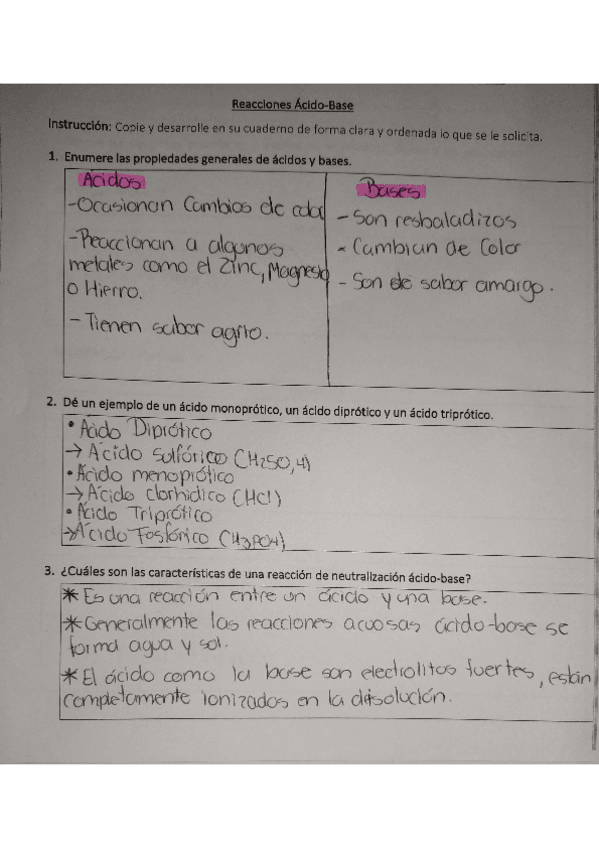 Reacciones Ácido-Base
Instrucción: Copie y desarrolle en su cuaderno de forma clara y ordenada lo que se le solicita.
1. Enumere las propiedades generales de ácidos y bases.
Acidos
-Ocasionan Cambios de color
-Reaccionan a algunos
metales como el Zinc, Magnesio
o Hierro.
-Tienen sabor agrio.
Bases
- Son resbaladizos
- Cambian de Color
- Son de sabor amargo.
2. Dé un ejemplo de un ácido monoprótico, un ácido diprótico y un ácido triprótico.
• Ácido Diprótico
→ Ácido Sulfórico (H2SO,4)
• Ácido menoprótico
→ Ácido clorhidico (HCl)
• Ácido Triprótico
→ Ácido Fosfórico (H3PO4)
3. ¿Cuáles son las características de una reacción de neutralización ácido-base?
* Es una reacción entre un ácido y una base.
* Generalmente las reacciones acuosas ácido-base se
forma agua y sal.
* El ácido como la base son electrolitos fuertes, están
completamente ionizados en la disolución.